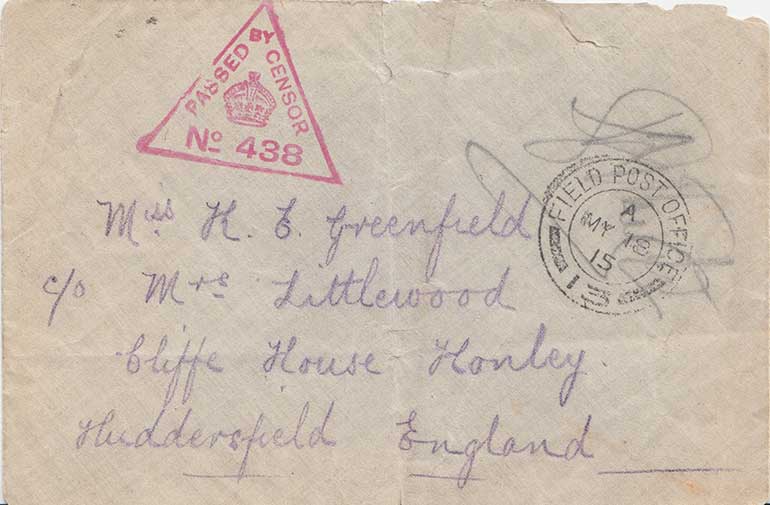 PASSED BY CENSOR
No 438
FIELD POST OFFICE
A
MY 18
15
Miss H. E. Greenfield
c/o Mrs Littlewood
Cliffe House Honley.
Huddersfield England